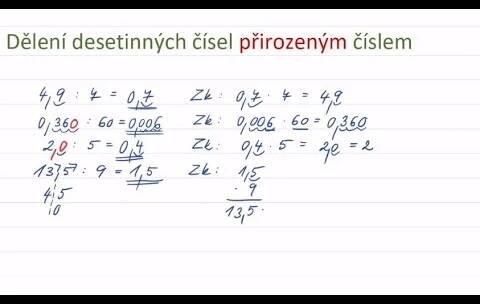 Dělení desetinných čísel přirozeným číslem
4,9 : 7 = 0,7 Zk: 0,7 · 7 = 4,9
0,360 : 60 = 0,006 Zk: 0,006 · 60 = 0,360
2,0 : 5 = 0,4 Zk: 0,4 · 5 = 2,0 = 2
13,5 : 9 = 1,5 Zk: 1,5
4 5 · 9
0 13,5